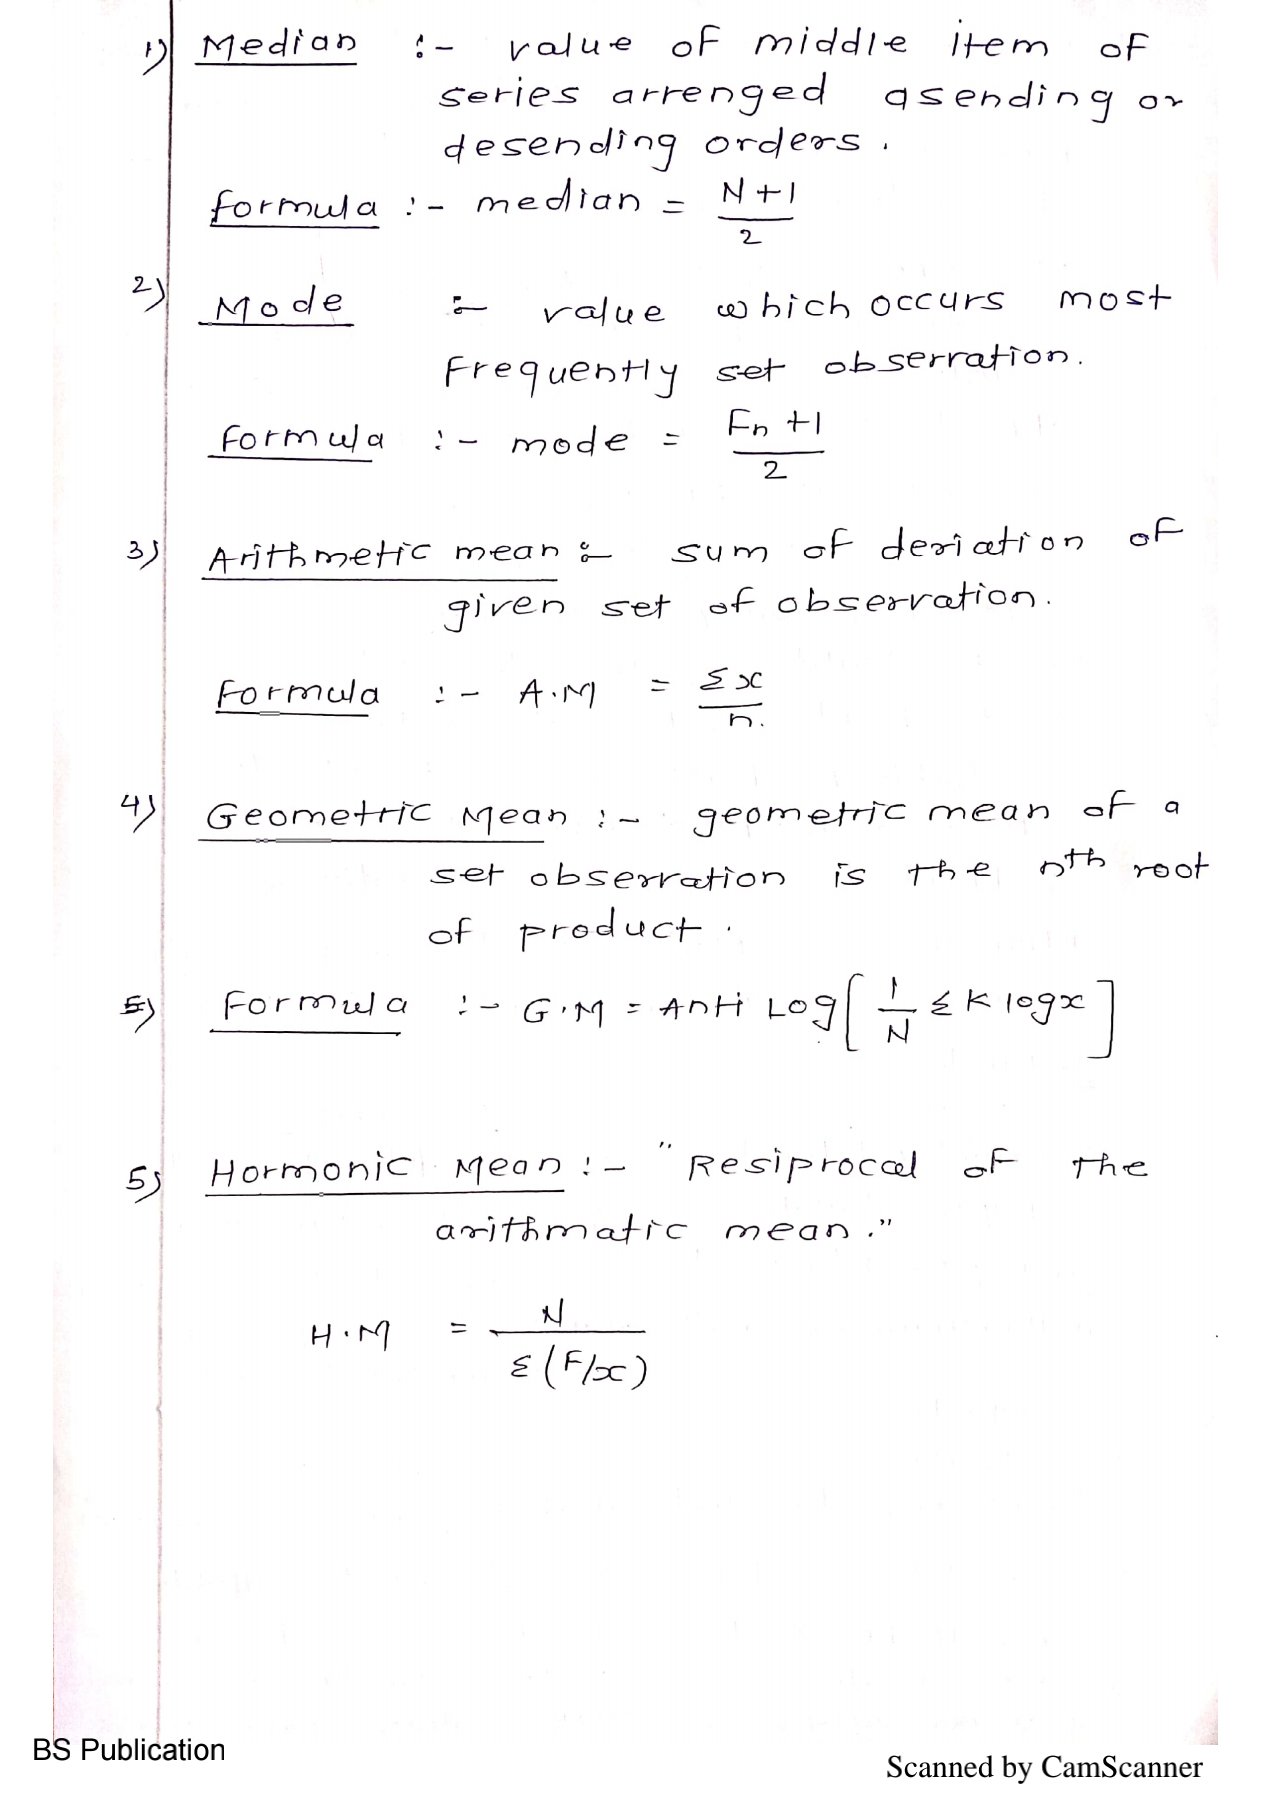 1) Median :- value of middle item of
series arrenged asending or
desending orders.
formula :- median = N+1/2
2) Mode :- value which occurs most
Frequently set observation.
formula :- mode = Fn +1/2
3) Arithmetic mean :- sum of deviation of
given set of observation.
Formula :- A.M = Σx/n.
4) Geometric Mean :- geometric mean of a
set observation is the nth root
of product.
5) Formula :- G.M = Anti Log[1/N Σ K logx]
5) Hormonic Mean :- "Resiprocal of the
arithmatic mean."
H.M = N/Σ(F/x)
BS Publication
Scanned by CamScanner